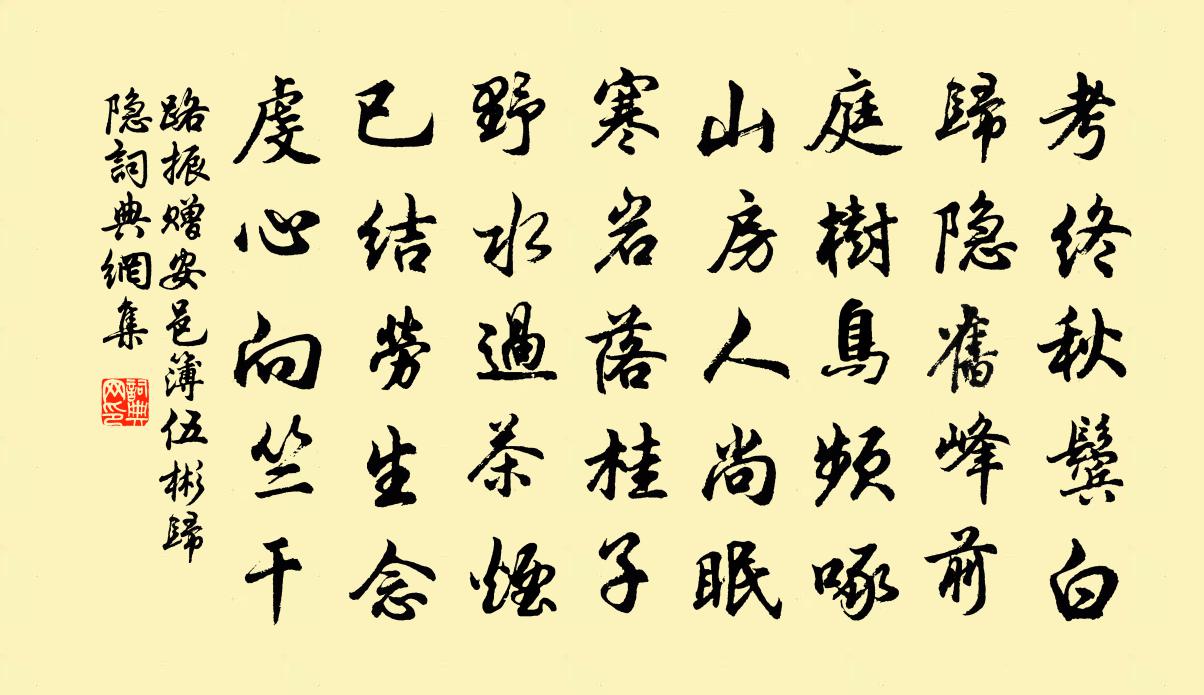 考終秋鬢白
歸隐舊峰前
庭樹鳥頻啄
山房人尚眠
寒岩落桂子
野水過茶煙
已结勞生念
虔心向竺干
路振赠安邑簿伍彬歸
隐詞典網集
詞典网印